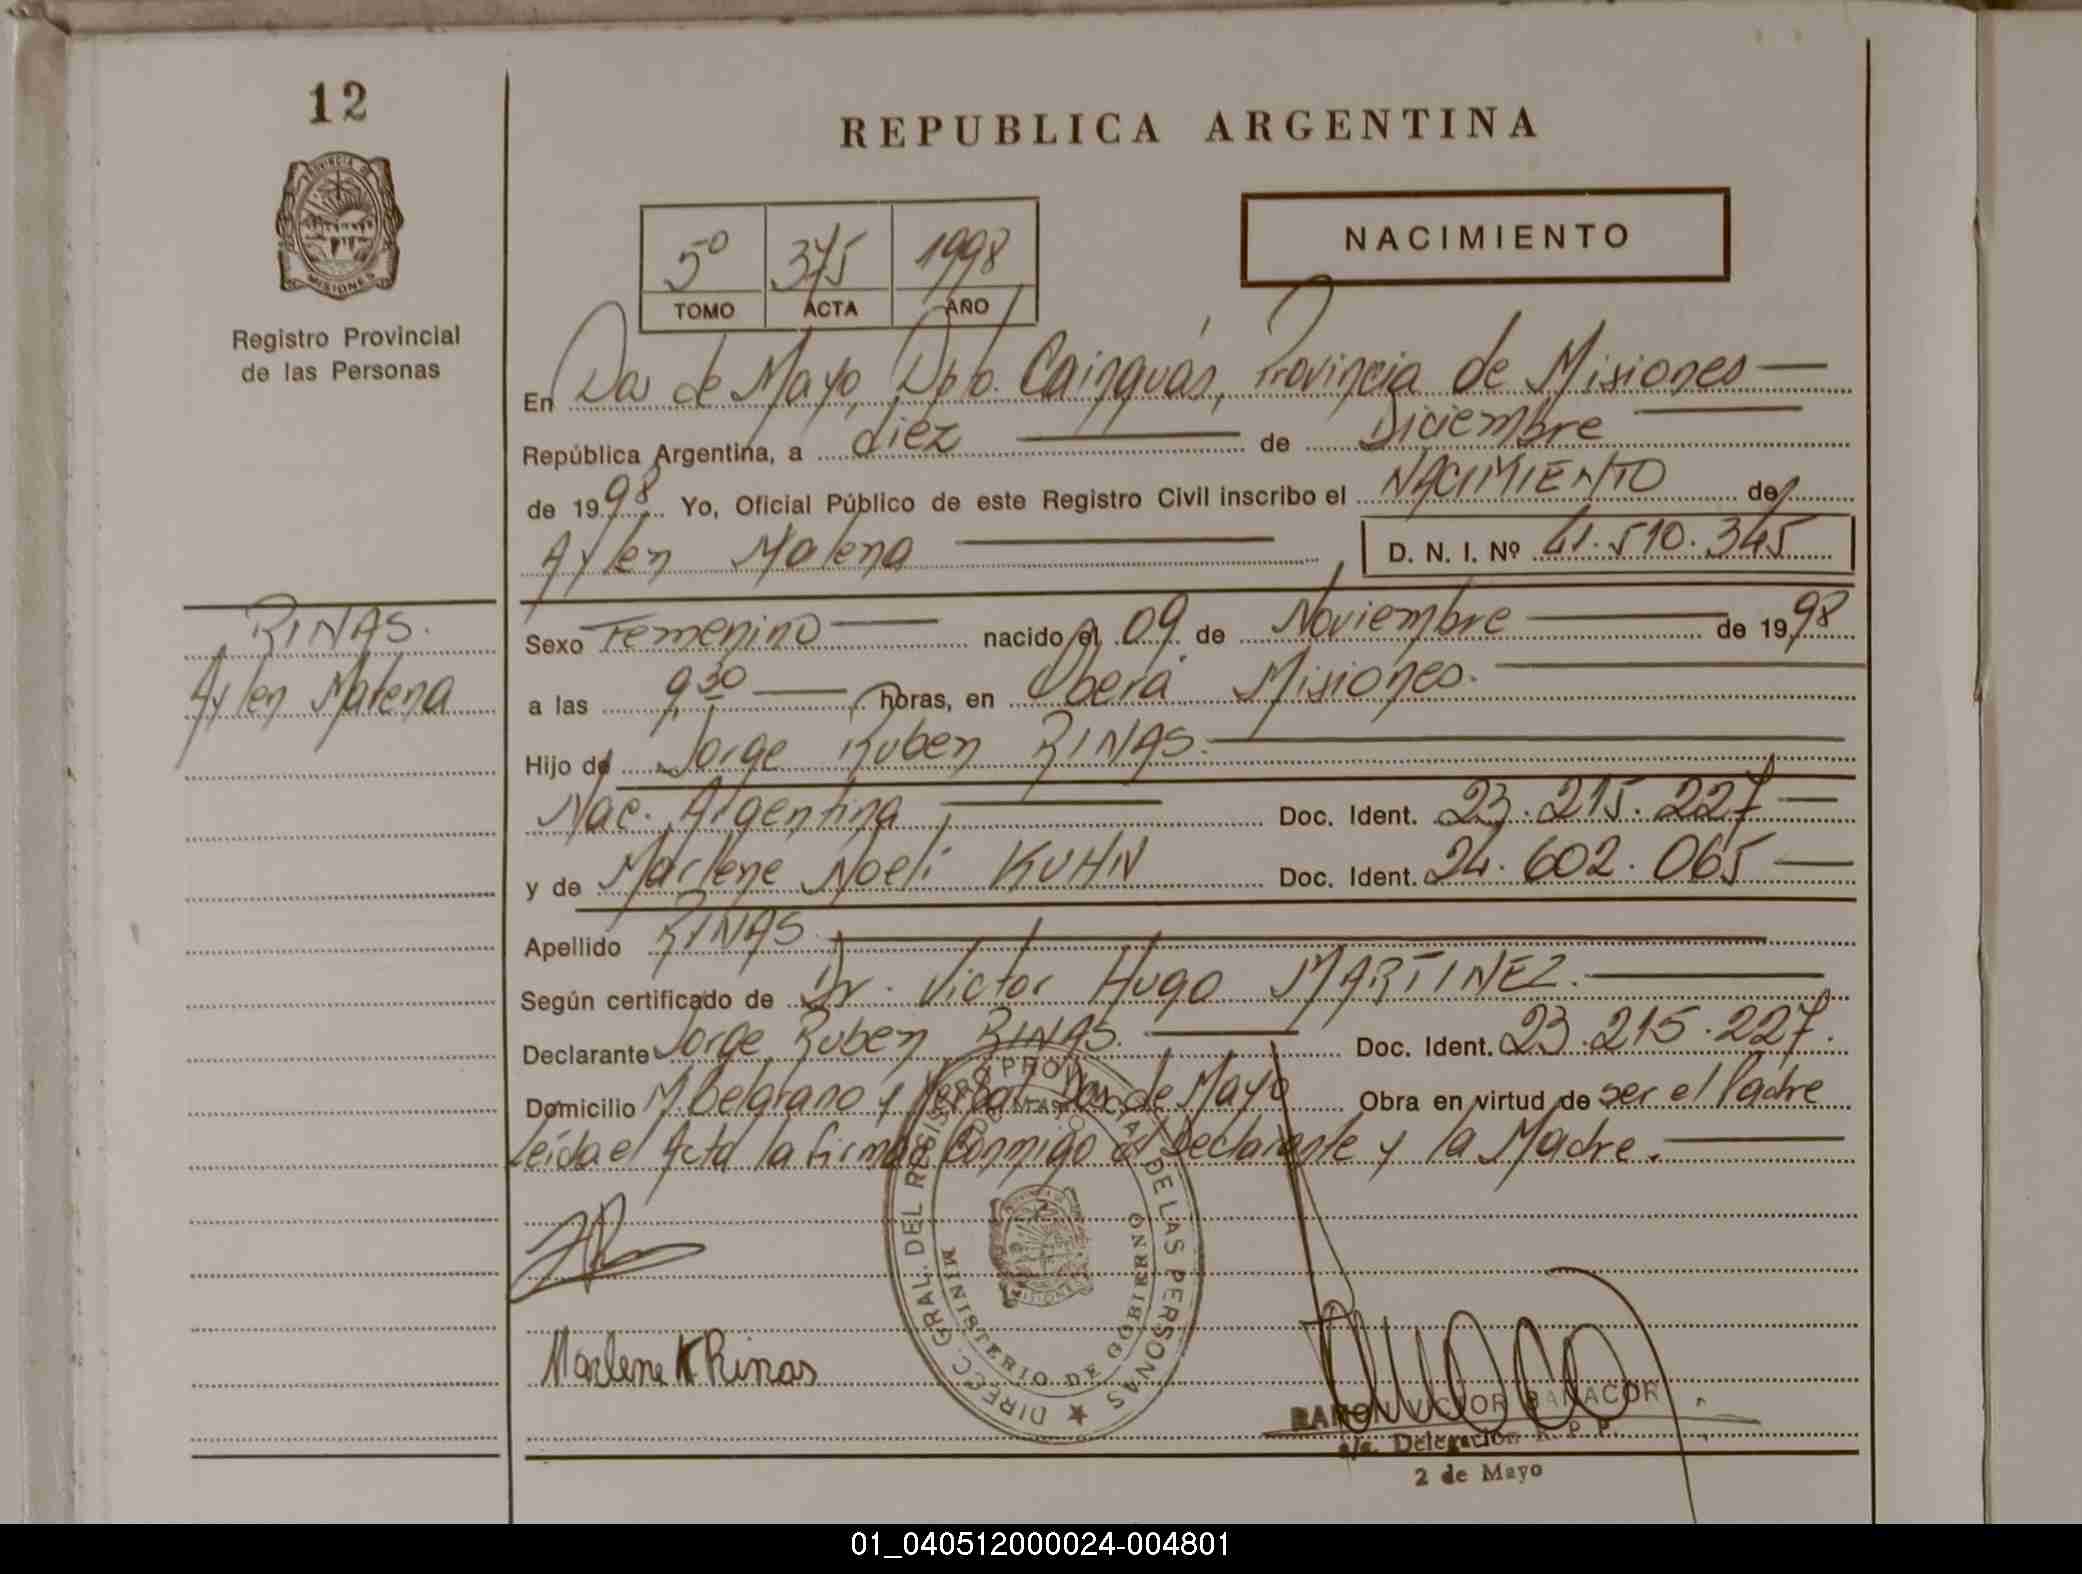 12
REPUBLICA ARGENTINA
PROVINCIA DE
MISIONES
Registro Provincial
de las Personas
NACIMIENTO
5º 375 1998
TOMO ACTA AÑO
En Dos de Mayo, Dpto. Cainguás, Provincia de Misiones
República Argentina, a diez de Diciembre
de 1998 Yo, Oficial Público de este Registro Civil inscribo el NACIMIENTO de
Aylen Malena D. N. I. Nº 41.510.345
RINAS.
Aylen Malena
Sexo Femenino nacido el 09 de Noviembre de 1998
a las 9,30 horas, en Oberá Misiones.
Hijo de Jorge Ruben RINAS.
Nac. Argentina Doc. Ident. 23.215.227
y de Marlene Noeli KUHN Doc. Ident. 24.602.065
Apellido RINAS
Según certificado de Dr. Victor Hugo MARTINEZ.
Declarante Jorge Ruben RINAS. Doc. Ident. 23.215.227.
Domicilio M. Belgrano y Dos de Mayo Obra en virtud de ser el Padre
Leída el Acta la firman Conmigo el Declarante y la Madre.
DIRECC. GRAL. DEL REGISTRO PROVINCIAL DE LAS PERSONAS
MINISTERIO DE GOBIERNO
MISIONES
Marlene K Rinas
RAMON VICTOR
a/c. Delegación R. P. P.
2 de Mayo
01_040512000024-004801